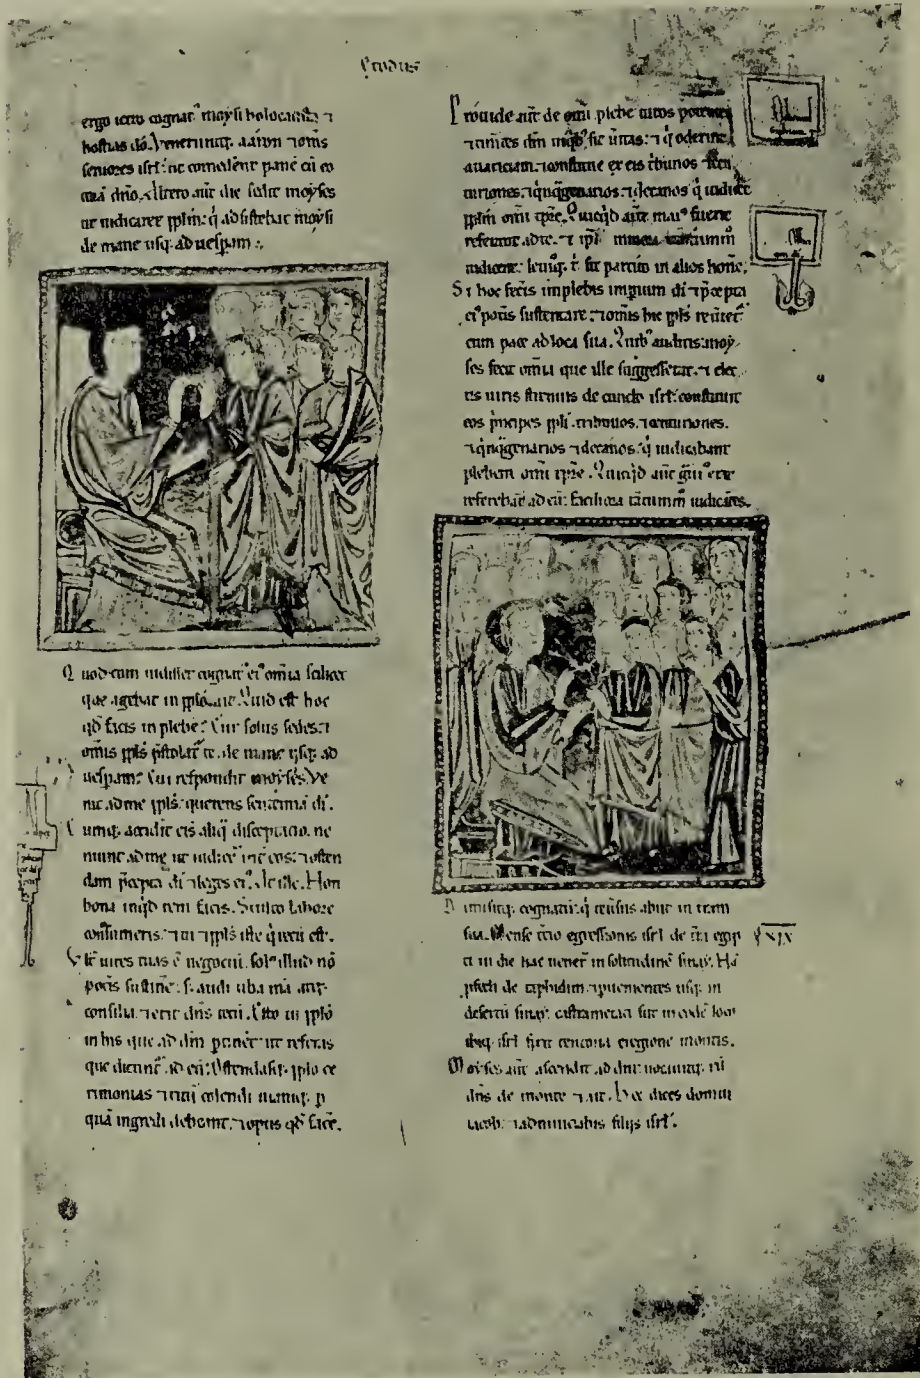 Exodus
ergo ietro cognat' moysi holocausta ⁊
hostias dō. Veneruntq; aaron ⁊ om̄s
seniores isrł: ut comederent panē cū eo
corā dn̄o. Altero aūt die sedit moyses
ut iudicaret pplm̄: q̇ adsistebat moysi
de mane usq; ad uesꝑam:.
Quod cum uidisset cognat' ei' om̄ia scilicet
que agebat in pplō: ait. Quid est hoc
qd̄ facis in plebe? Cur solus sedes: ⁊
om̄is ppls̄ p̄stolat' te. de mane usq; ad
uesꝑam? Cui respondit moyses. Ve
nit ad me ppls̄: querens sententiā dī.
Cumq; accidit eis aliq̄ disceptacio. ue
niunt ad me ut iudicē int̄ eos: ⁊ osten
dam p̄cepta dī ⁊ leges ei'. At ille. Non
bona inq̇d rem facis. Stulto labore
consumeris: ⁊ tu ⁊ ppls̄ iste q̇ tecū est.
Vlt̄ uires tuas ē negociū. sol' illud nō
potis sustinē. S; audi ūba mā atq;
consilia: ⁊ erit dn̄s tecū. Esto tu pplō
in his que ad dm̄ ꝑtinēt: ut referas
que dicunt' ad eū: Ostendasq; pplo ce
rimonias ⁊ ritū colendi uiamq; ꝑ
quā ingredi debeant: ⁊ opus qd̄ facē.
Prouide aūt de om̄i plebe uiros potentes
⁊ timētes dm̄ inq̇b; sit ūitas: ⁊ q̇ oderint
auariciam: ⁊ constitue ex eis t̄bunos ⁊ cen
turiones: ⁊ q̇nq̇genarios: ⁊ decanos q̇ iudicēt
pplm̄ om̄i tp̄re. Quicq̇d aūt mai' fuerit
referant ad te: ⁊ ipī minora tantummō
iudicent: leuiq; t̄ sit partito in alios hon̄e.
Si hoc fec̄is implebis impium dī ⁊ p̄cepta
ei' potis sustentare: ⁊ om̄is hic ppls̄ reūtet'
cum pace ad loca sua. Quib; auditis: moy
ses fecit om̄ia que ille suggesserat. ⁊ elec
tis uiris strenuis de cuncto isrł: constituit
eos p̄ncipes ppli. tribunos. ⁊ centuriones.
⁊ q̇nq̇genarios ⁊ decanos: q̇ iudicabant
plebem om̄i tp̄re. Quicq̇d aūt ġui' erat
referebāt ad eū: faciliora tantummō iudicātes.
Dimisitq; cognatū: q̇ reūsus abiit in terrā
suā. Mense t̄cio egressionis isrł de t̄ra egip XIX
ti in die hac uenert̄ in solitudinē sinay. Nā
pfecti de raphidim: ⁊ ꝑuenientes usq; in
desertū sinay: castrametati sūt in eodē loco
ibiq; isrł fixit tentoria e regione montis.
Moyses aūt ascendit ad dm̄: uocauitq; eū
dn̄s de monte ⁊ ait. Hec dices domui
iacob: ⁊ adnunciabis filijs isrł.